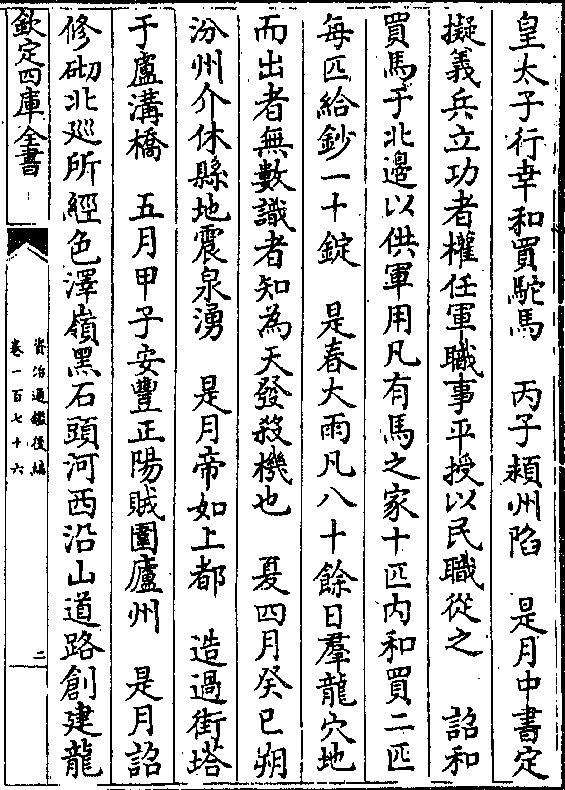 皇太子行幸和買駝馬　丙子潁州陷　是月中書定
擬義兵立功者權任軍職事平授以民職從之　詔和
買馬于北邊以供軍用凡有馬之家十匹内和買二匹
每匹給鈔一十錠　是春大雨凡八十餘日羣龍穴地
而出者無數識者知為天發殺機也　夏四月癸巳朔
汾州介休縣地震泉湧　是月帝如上都　造過街塔
于盧溝橋　五月甲子安豐正陽賊圍廬州　是月詔
修砌北廵所經色澤嶺黑石頭河西沿山道路創建龍
欽定四庫全書
資治通鑑後編
卷一百七十六
二